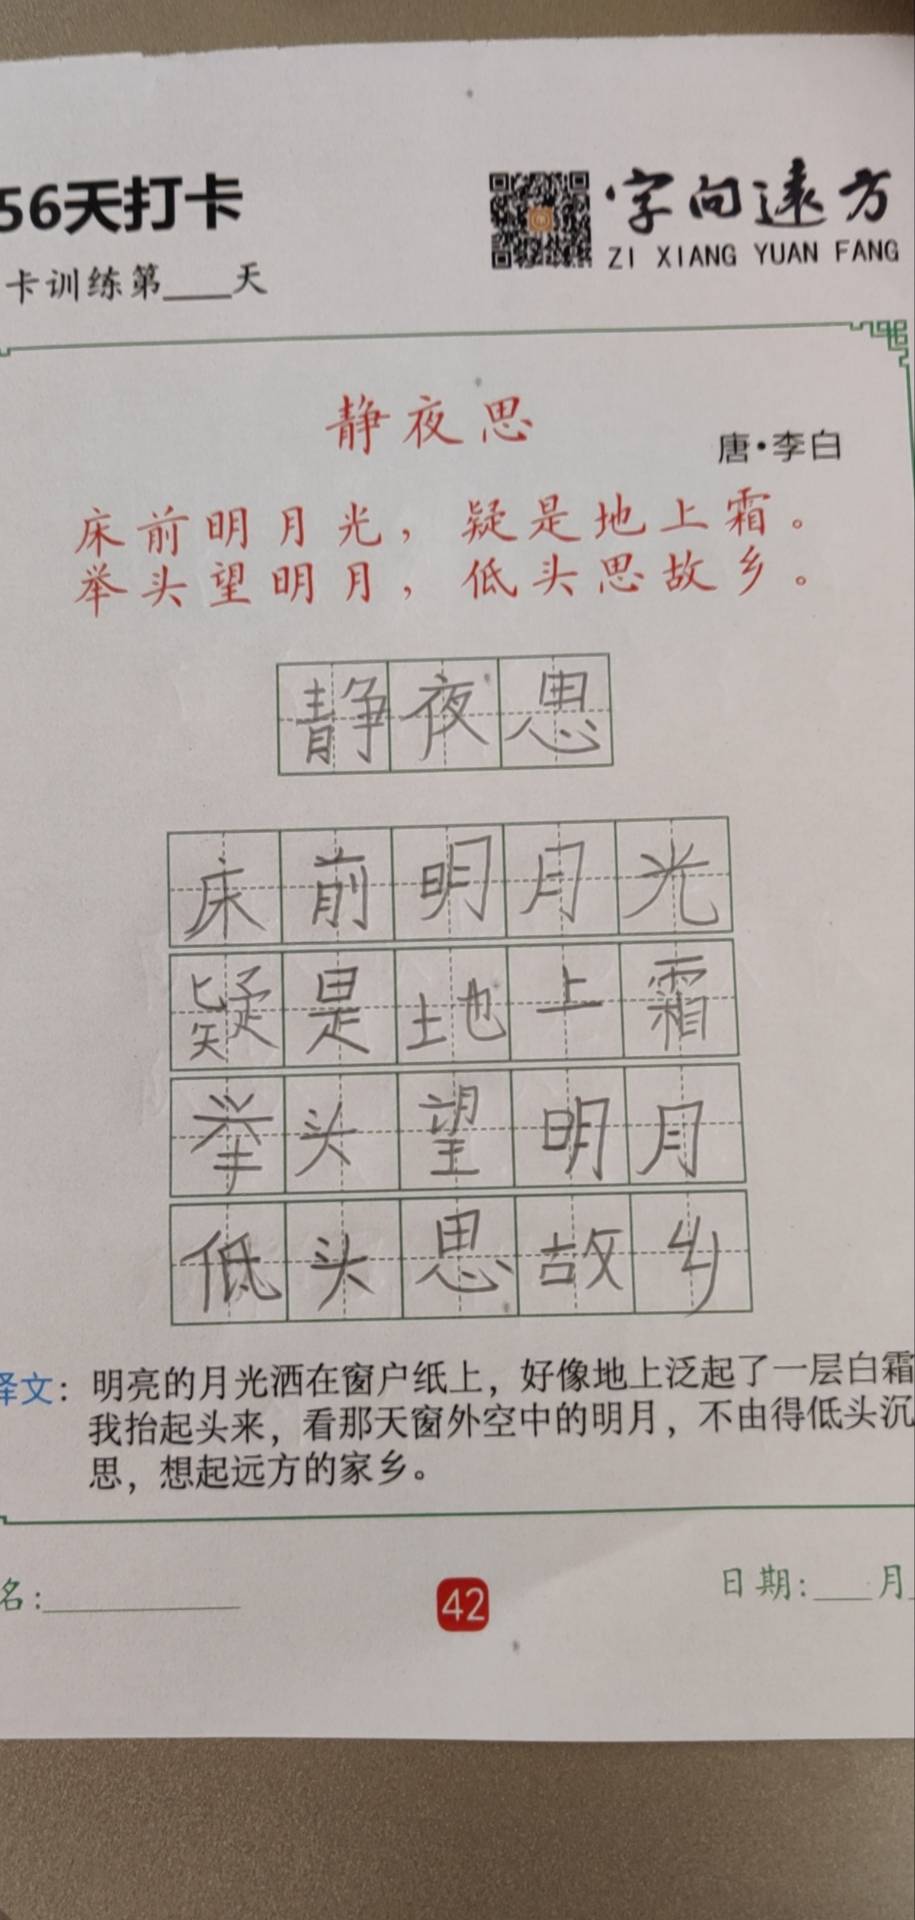 56天打卡
字向遠方
ZI XIANG YUAN FANG
卡训练第____天
静夜思
唐·李白
床前明月光，疑是地上霜。
举头望明月，低头思故乡。
静夜思
床前明月光
疑是地上霜
举头望明月
低头思故乡
译文：明亮的月光洒在窗户纸上，好像地上泛起了一层白霜
我抬起头来，看那天窗外空中的明月，不由得低头沉
思，想起远方的家乡。
名:__________
42
日期:___月